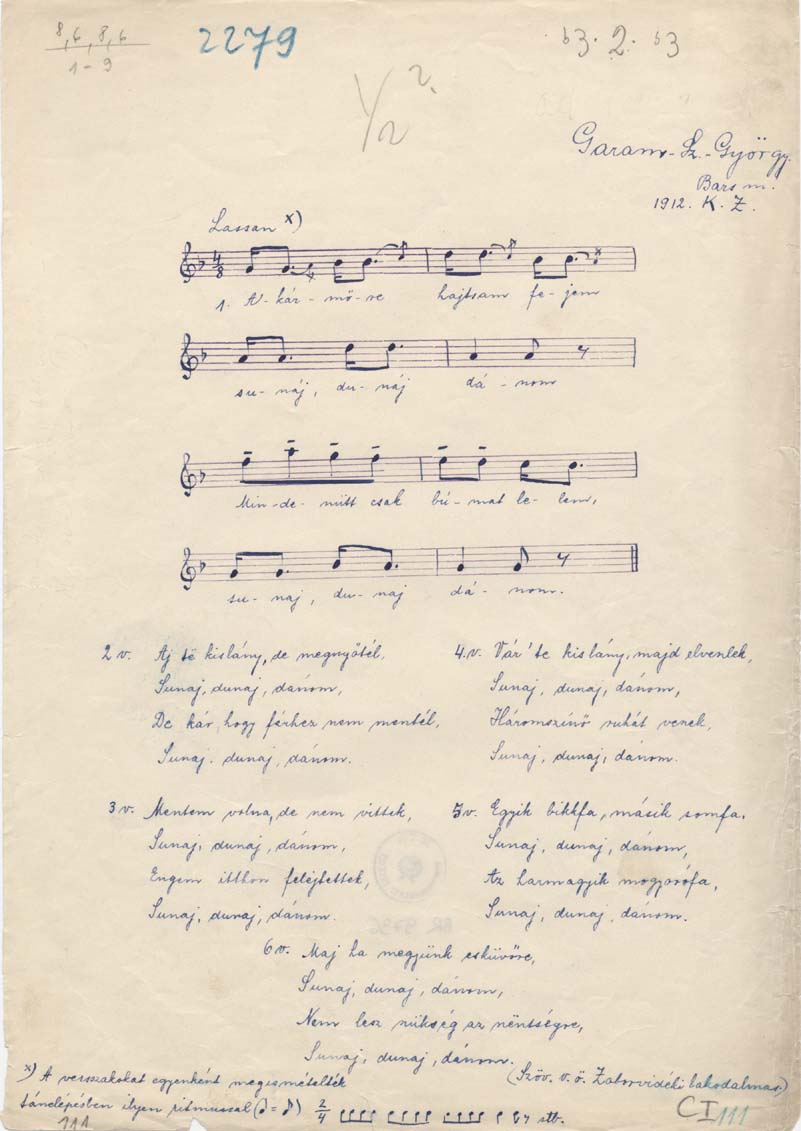 8,6,8,6
1-9
2279
b3. 2. b3
1/2 2.
Garam-Sz.-György.
Bars m.
1912. K. Z.
Lassan x)
1. A-kár-mő-re hajtsam fe-jem
su-náj, du-náj dá-nom
Min-de-nütt csak bú-mat le-lem,
su-naj, du-naj dá-nom.
2 v. Aj të kislány, de megnyőtél,
Sunaj, dunaj, dánom,
De kár, hogy férhez nem mentél,
Sunaj, dunaj, dánom.
3 v. Mentem volna, de nem vittek,
Sunaj, dunaj, dánom,
Engem itthon felejtettek,
Sunaj, dunaj, dánom.
4.v. Vár' te kislány, majd elvenlek,
Sunaj, dunaj, dánom,
Háromszínő ruhát venek,
Sunaj, dunaj, dánom.
5v. Egyik bikkfa, másik somfa,
Sunaj, dunaj, dánom,
Az harmagyik mogyorófa,
Sunaj, dunaj, dánom.
6v. Maj ha megyünk esküvőre,
Sunaj, dunaj, dánom,
Nem lesz nükség az nëntségre,
Sunaj, dunaj, dánom.
(Szöv. v. ö. Zoborvidéki lakodalmas)
x) A versszakokat egyenként megismételték
tánclépésben ilyen ritmussal 2/4 stb.
111
C I 111